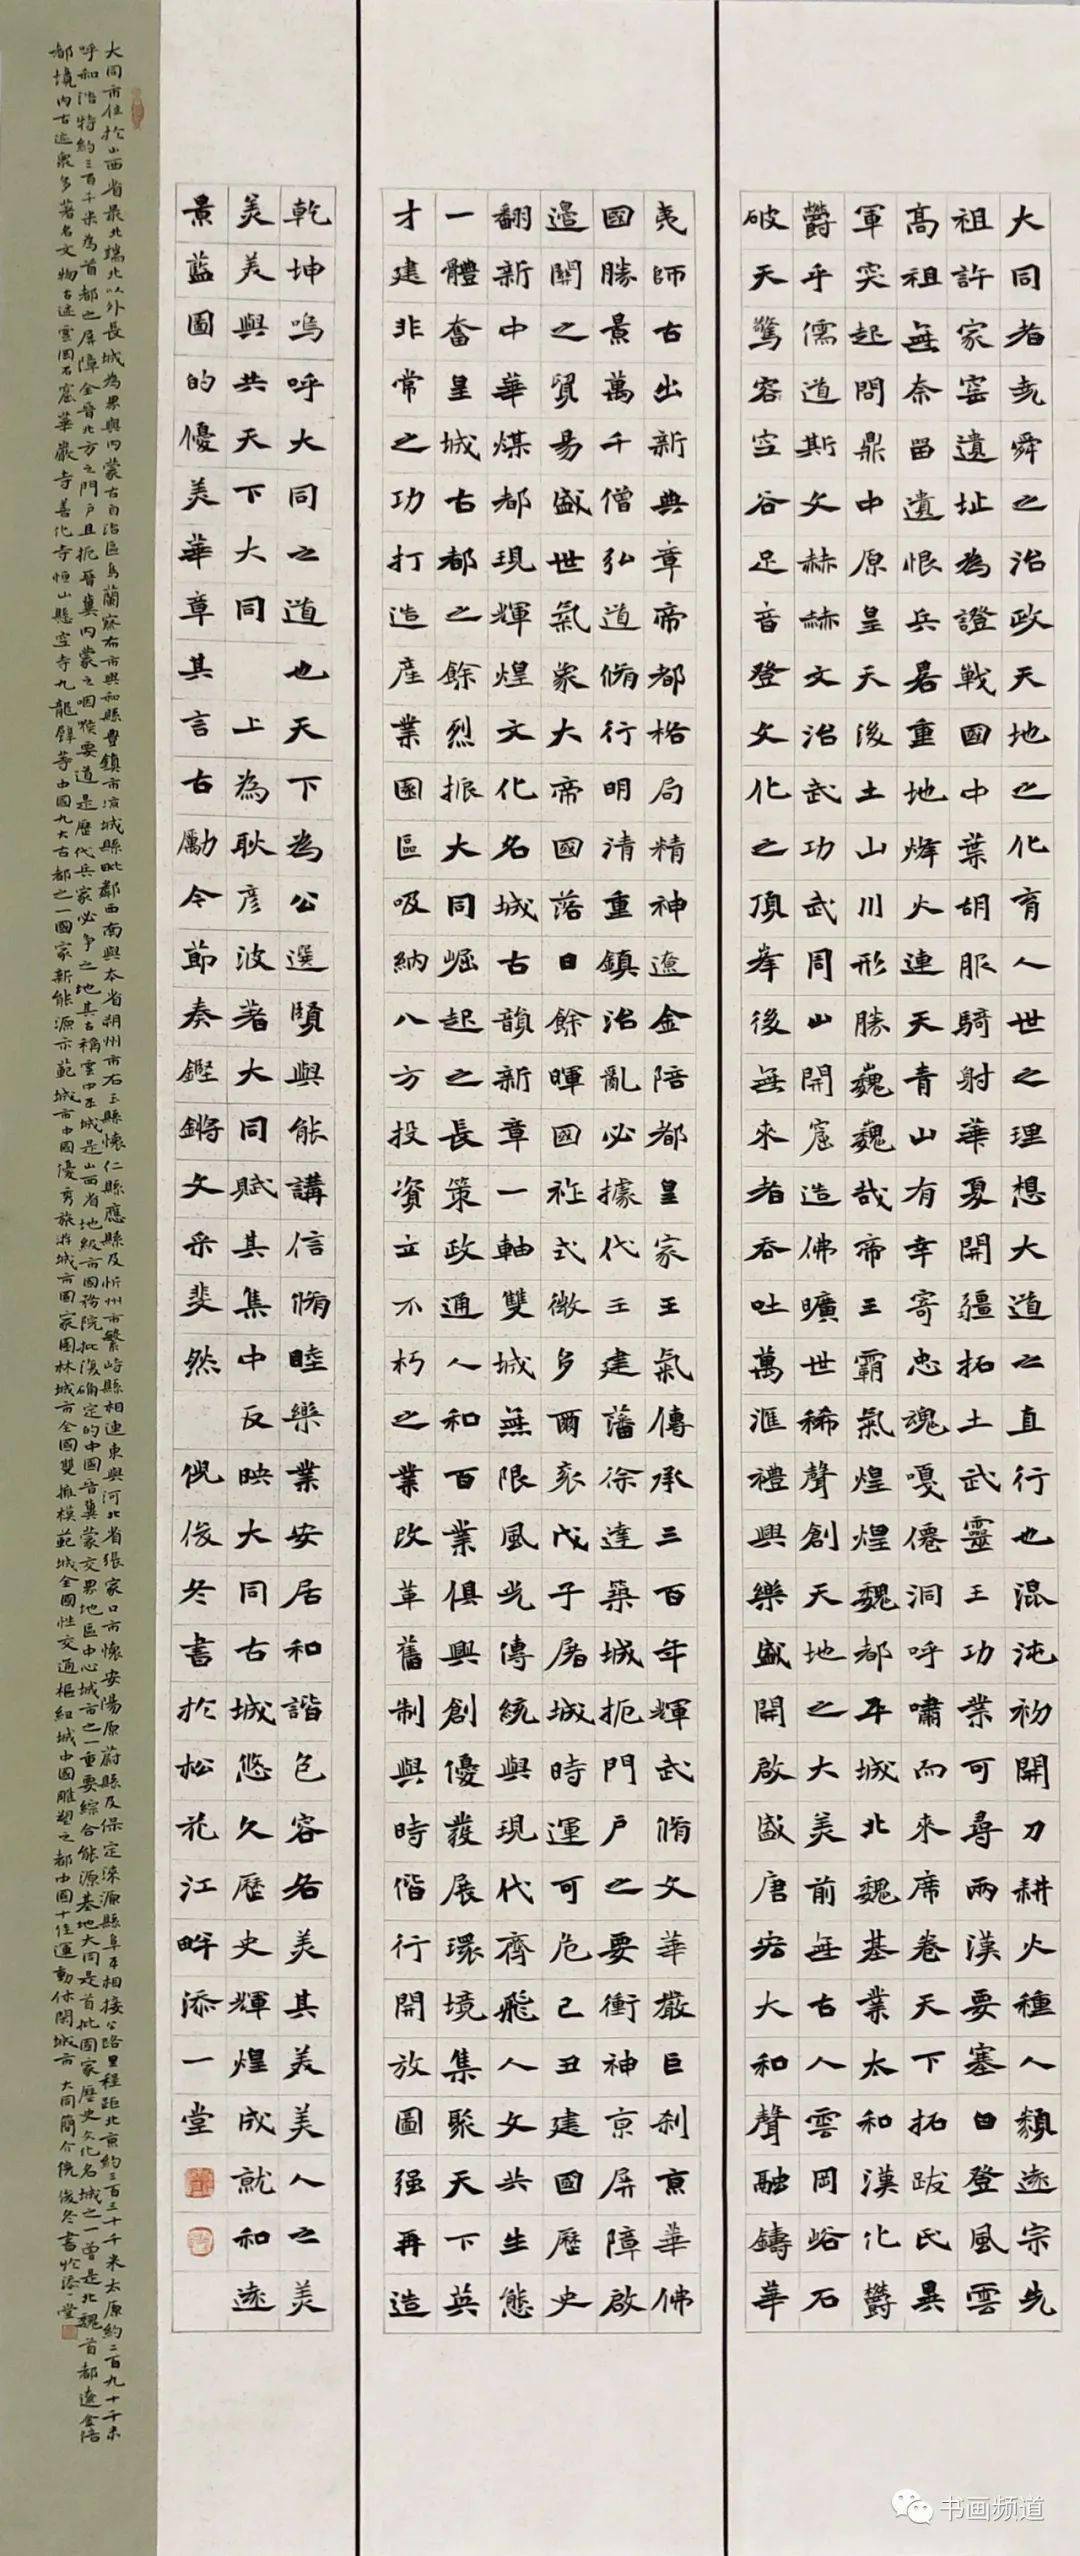 大同者堯舜之治政天地之化育人世之理想大道之直行也混沌初開刀耕火種人類遠宗先
祖許家窑遺址為證戰國中葉胡服騎射華夏開疆拓土武靈王功業可尋兩漢要塞白登風雲
高祖無奈留遺恨兵畧重地烽火連天青山有幸寄忠魂嘎僊洞呼嘯而來席卷天下拓跋氏異
軍突起問鼎中原皇天後土山川形勝巍巍哉帝王霸氣煌煌魏都平城北魏基業太和漢化欝
欝乎儒道斯文赫赫文治武功武周山開窟造佛曠世稀聲創天地之大美前無古人雲岡峪石
破天驚容空谷足音登文化之頂峯後無來者吞吐萬滙禮興樂盛開啟盛唐宏大和聲融鑄華
夷師古出新典章帝都格局精神遼金陪都皇家王氣傳承三百年輝武脩文華嚴巨刹京華佛
國勝景萬千僧弘道脩行明清重鎮治亂必據代王建藩徐達築城扼門户之要衝神京屏障啟
邊關之貿易盛世氣象大帝國落日餘暉國祚式微多爾衮戊子屠城時運可危己丑建國歷史
翻新中華煤都現輝煌文化名城古韻新章一軸雙城無限風光傳統與現代齊飛人文共生態
一體奮呈城古都之餘烈振大同崛起之長策政通人和百業俱興創優發展環境集聚天下英
才建非常之功打造産業園區吸納八方投資立不朽之業改革舊制與時偕行開放圖强再造
乾坤嗚呼大同之道也天下為公選賢與能講信脩睦樂業安居和諧包容各美其美美人之美
美美與共天下大同 上為耿彦波著大同賦其集中反映大同古城悠久歷史輝煌成就和遠
景藍圖的優美華章其言古勵今節奏鏗鏘文采斐然 倪俊冬書於松花江畔添一堂
大同市位於山西省最北端北以外長城為界與内蒙古自治區烏蘭察布市興和縣豐鎮市凉城縣毗鄰西南與本省朔州市右玉縣懷仁縣應縣及忻州市繁峙縣相連東與河北省張家口市懷安陽原蔚縣及保定淶源縣阜平相接公路里程距北京約三百三十千米太原約二百九十千米
呼和浩特約三百千米為首都之屏障全晋北方之門户且扼晋冀内蒙之咽喉要道是歷代兵家必争之地其古稱雲中平城是山西省地級市國務院批復确定的中國晋冀蒙交界地區中心城市之一重要綜合能源基地大同是首批國家歷史文化名城之一曾是北魏首都遼金陪
都境内古迹衆多著名文物古迹雲岡石窟華嚴寺善化寺恒山懸空寺九龍壁等中國九大古都之一國家新能源示範城市中國優秀旅游城市國家園林城市全國雙擁模範城全國性交通樞紐城中國雕塑之都中國十佳運動休閑城市 大同簡介倪俊冬書於添一堂
书画频道